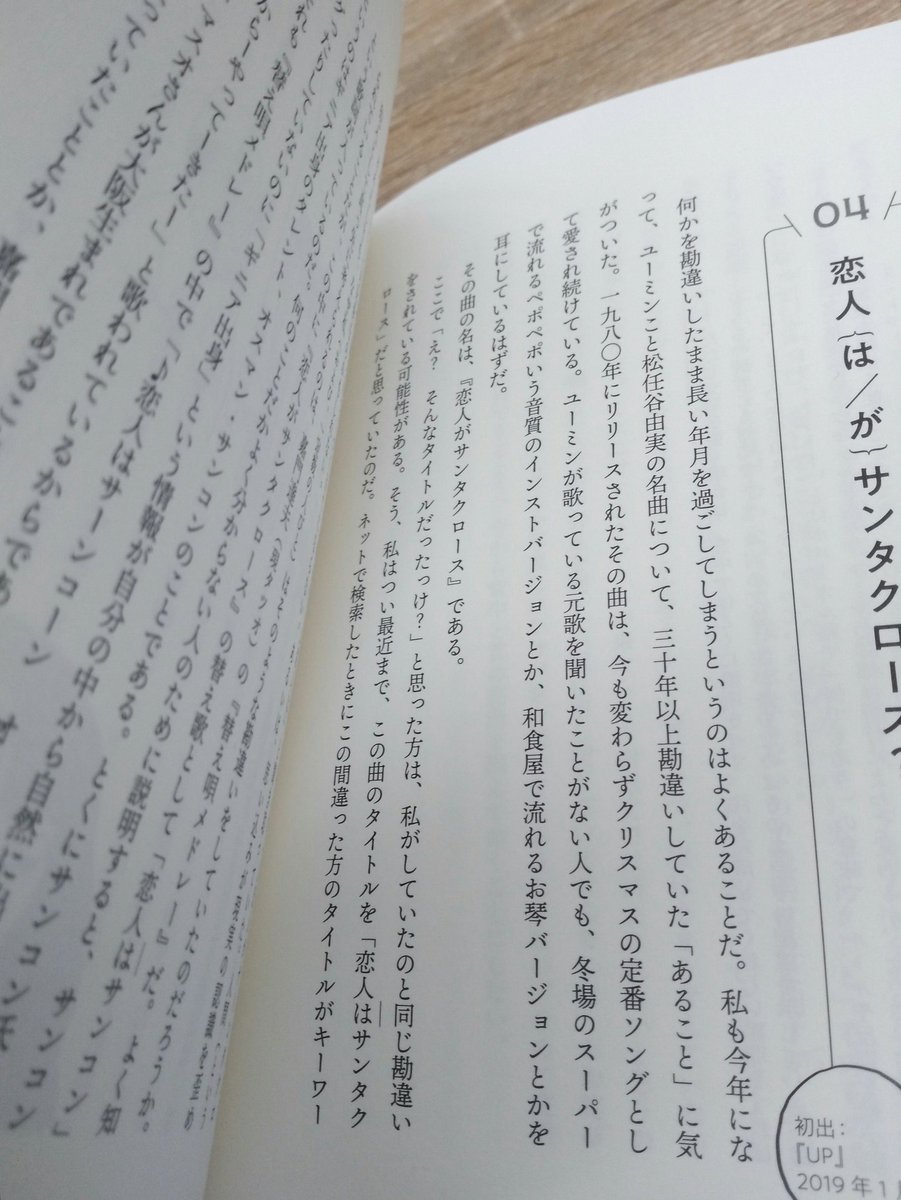 04
恋人{は/が}サンタクロース?
初出:
『UP』
2019年1
何かを勘違いしたまま長い年月を過ごしてしまうというのはよくあることだ。私も今年にな
って、ユーミンこと松任谷由実の名曲について、三十年以上勘違いしていた「あること」に気
がついた。一九八〇年にリリースされたその曲は、今も変わらずクリスマスの定番ソングとし
て愛され続けている。ユーミンが歌っている元歌を聞いたことがない人でも、冬場のスーパー
で流れるペポペポいう音質のインストバージョンとか、和食屋で流れるお琴バージョンとかを
耳にしているはずだ。
その曲の名は、『恋人がサンタクロース』である。
ここで「え? そんなタイトルだったっけ?」と思った方は、私がしていたのと同じ勘違い
をされている可能性がある。そう、私はつい最近まで、この曲のタイトルを「恋人はサンタク
ロース」だと思っていたのだ。ネットで検索したときにこの間違った方のタイトルがキーワー
の『替え唄メドレー』だ。よく知
『恋人がサンタクロース』の替え歌として「恋人はサンコン」
ギニア出身のタレント、オスマン・サンコンのことである。とくにサンコン
「ギニア出身」という情報が自分の中から自然に
『替え唄メドレー』の中で「♪恋人はサーンコーン
からーやってーきたー」と歌われているからであ
マスオさんが大阪生まれであるこ
っていたこととか、